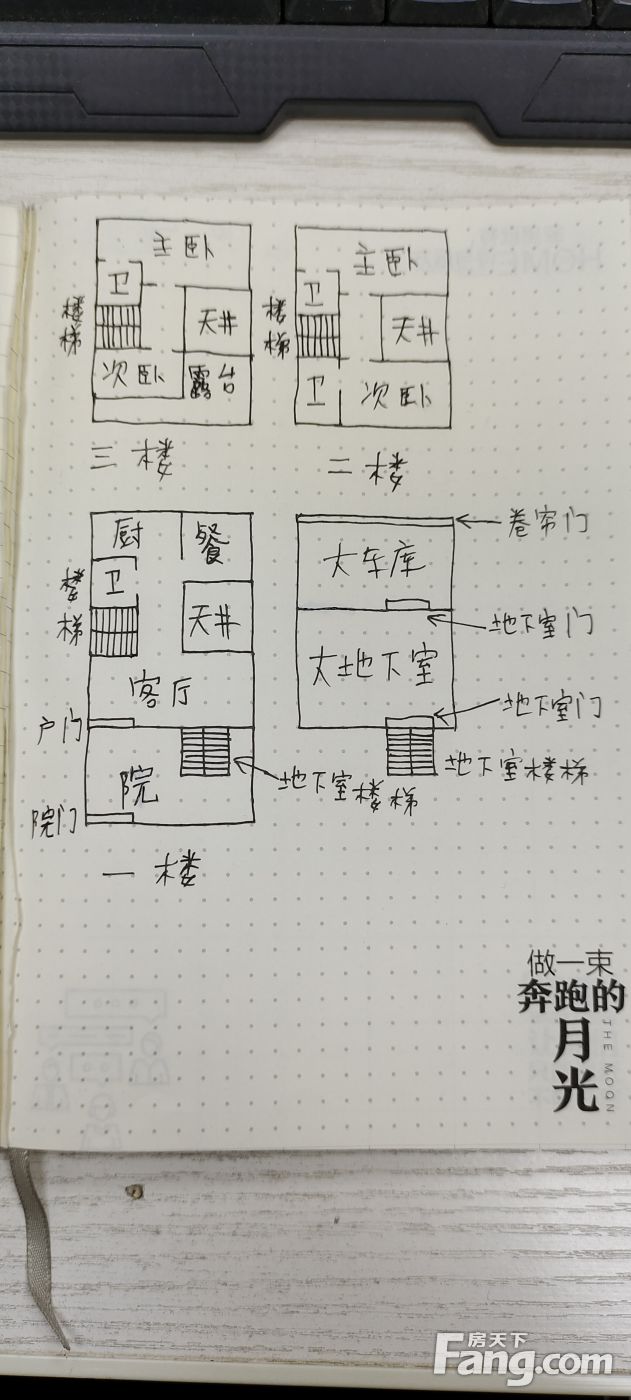 主卧
卫
楼梯
天井
次卧
露台
三楼
主卧
卫
楼梯
天井
卫
次卧
二楼
厨
餐
卫
楼梯
天井
客厅
户门
院
院门
地下室楼梯
一楼
卷帘门
大车库
地下室门
大地下室
地下室门
地下室楼梯
做一束
奔跑的
月光
THE MOON
房天下
Fang.com